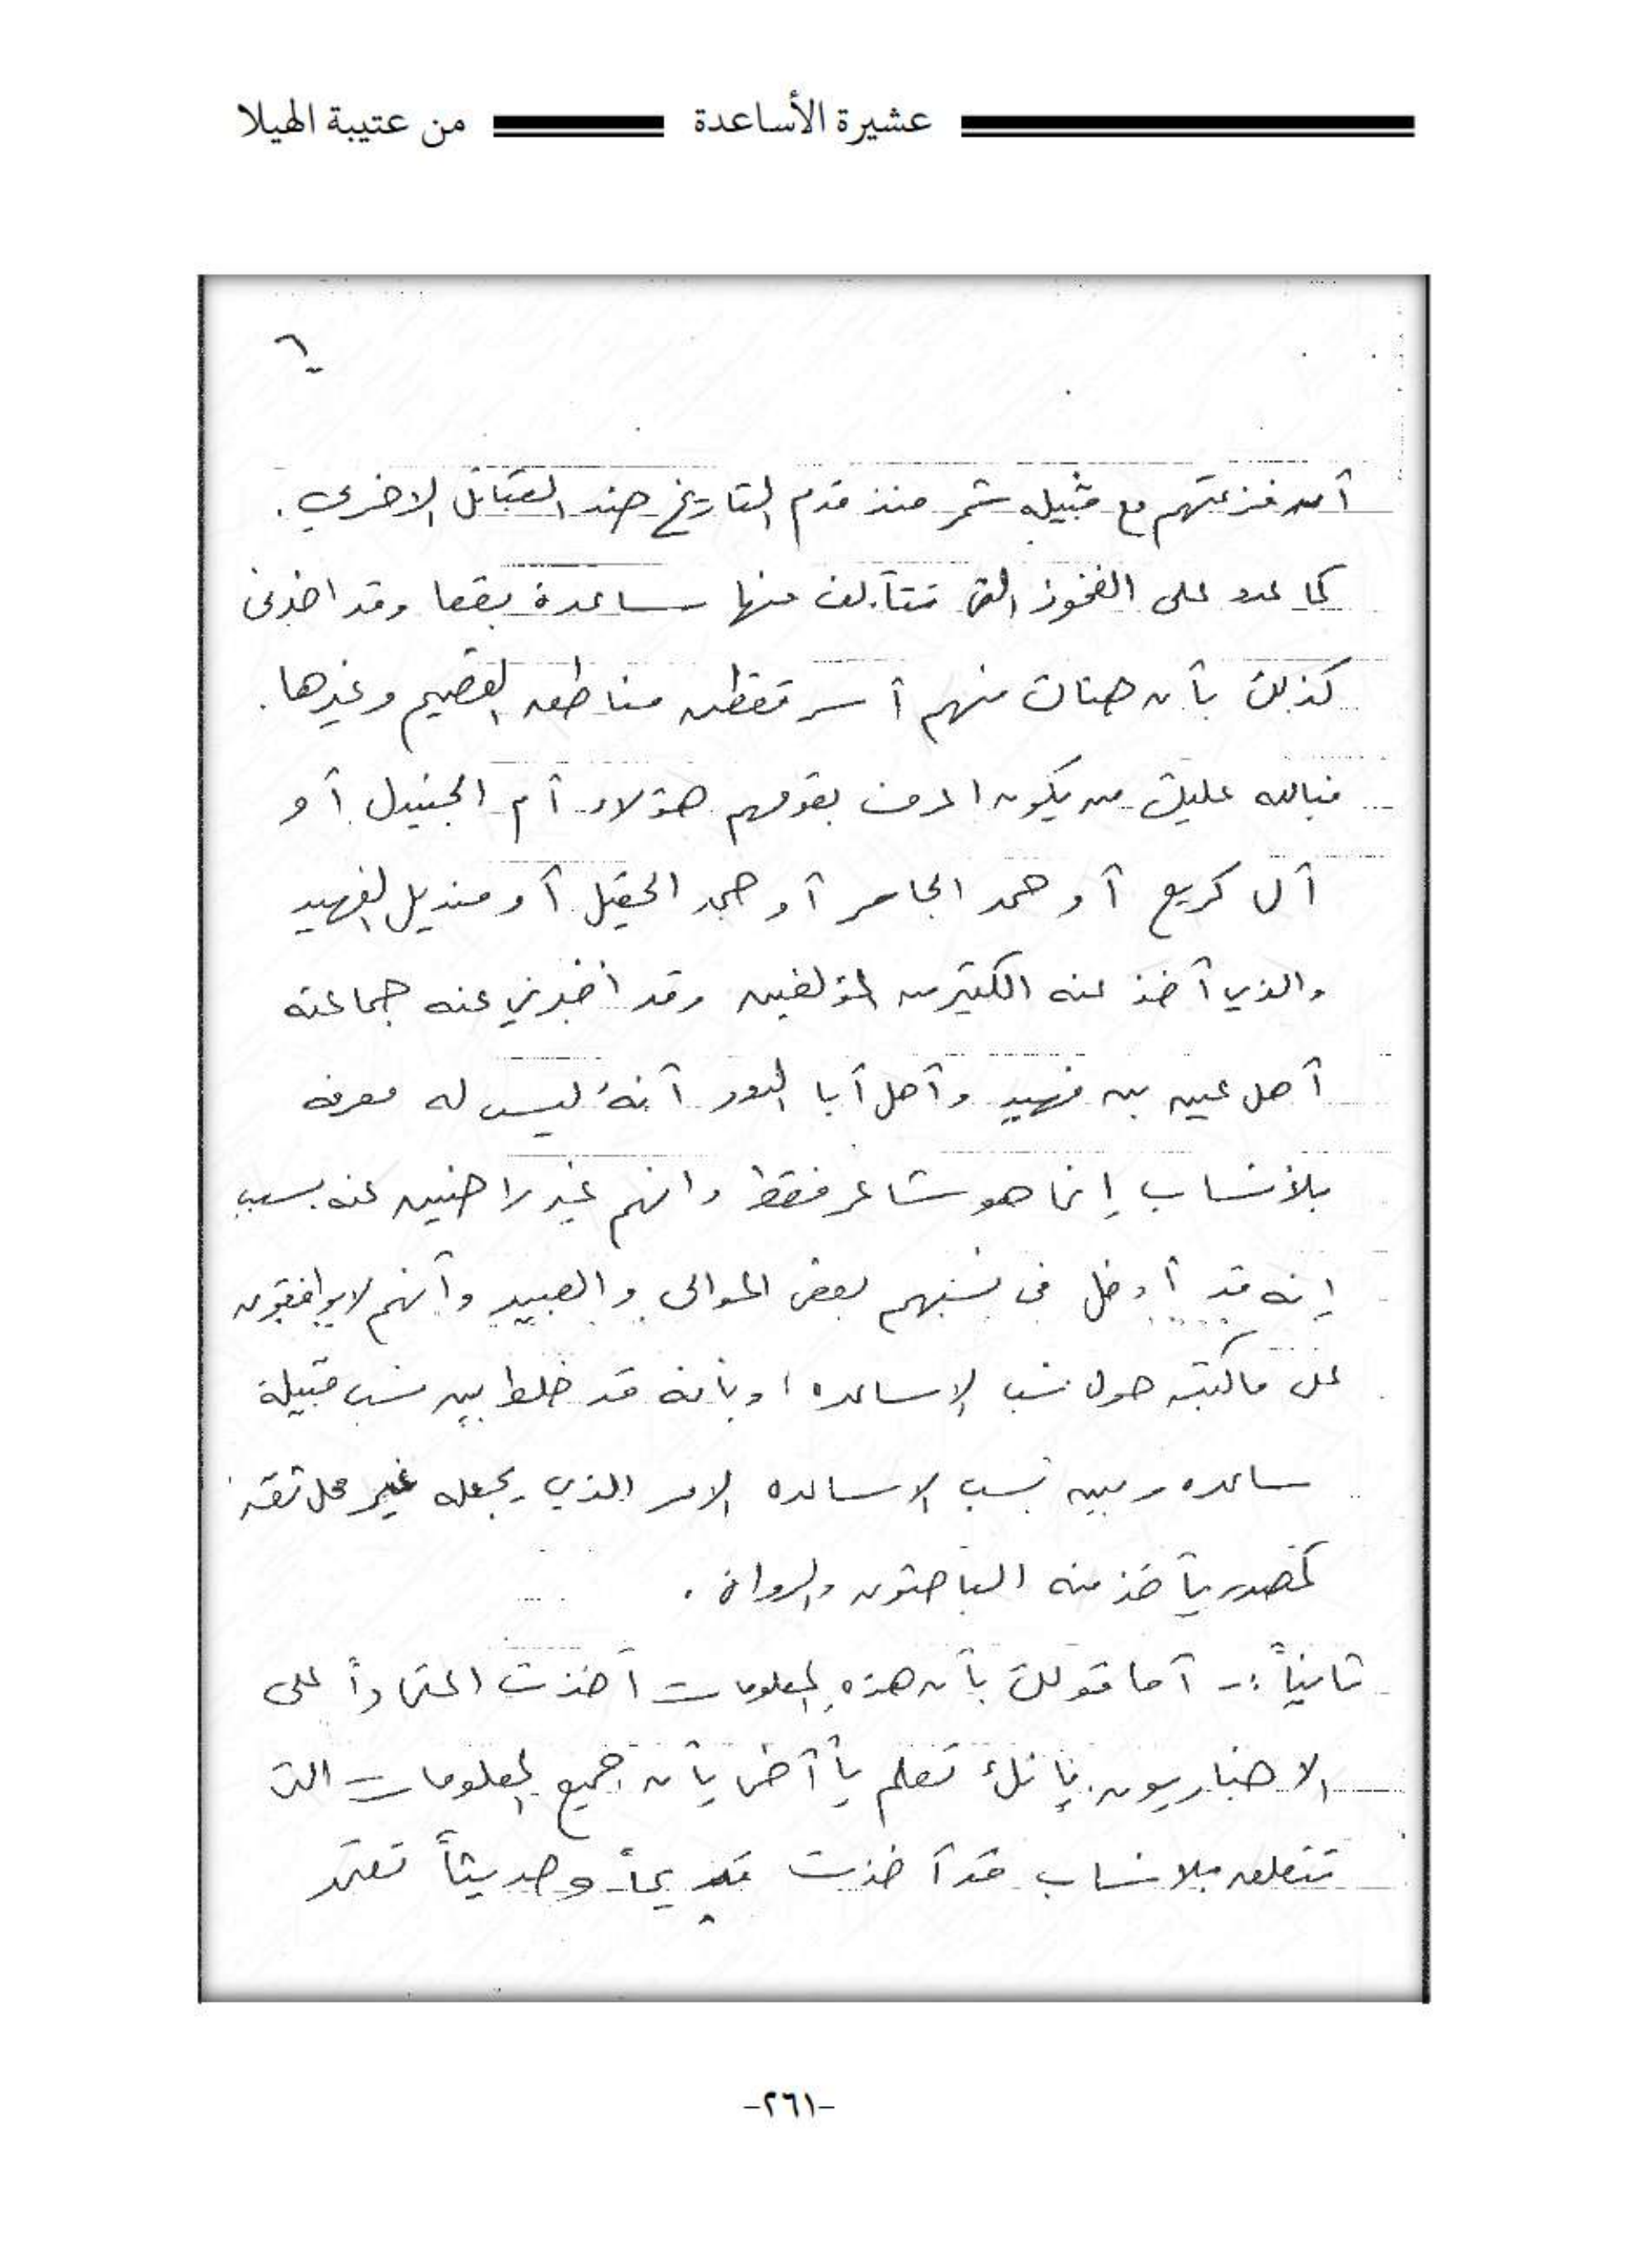 عشيرة الأساعدة من عتيبة الهيلا
٦
أن فزعتهم مع قبيله شمر منذ قدم التاريخ ضد القبائل الاخرى .
كما عدد على الفخوذ التي تتألف منها ساعدة بقعا وقد اخبرني
كذلك بأن هناك منهم أسر تقطن مناطق القصيم وغيرها .
فبالله عليك من يكون اعرف بقومهم هؤلاء أم الجنيدل أو
آل كريع أو حمد الجاسر أو حمد الحقيل أو منديل الفهيد
والذي أخذ عنه الكثير من المؤلفين وقد أخبرني عنه جماعته
أهل عين بن فهيد وأهل أبا الدود أنهُ ليس له معرفه
بلأنساب إنما هو شاعر فقط وانهم غير راضين عنه بسبب
إنه قد أدخل في نسبهم بعض الموالي والعبيد وأنهم لا يوافقون
على ماكتبه حول نسب الاساعده ، وبأنه قد خلط بين نسب قبيلة
ساعده وبين نسب الاساعده الامر الذي يجعله غير محل ثقه
كمصدر يأخذ منه الباحثون والرواة .
ثانياً :- أما قولك بأن هذه المعلومات أخذت اعتماداً على
الاخباريون فإنك تعلم يأ أخي بأن جميع المعلومات التي
تتعلق بلانساب قد أخذت قديماً وحديثاً تعتمد
-٢٦١-